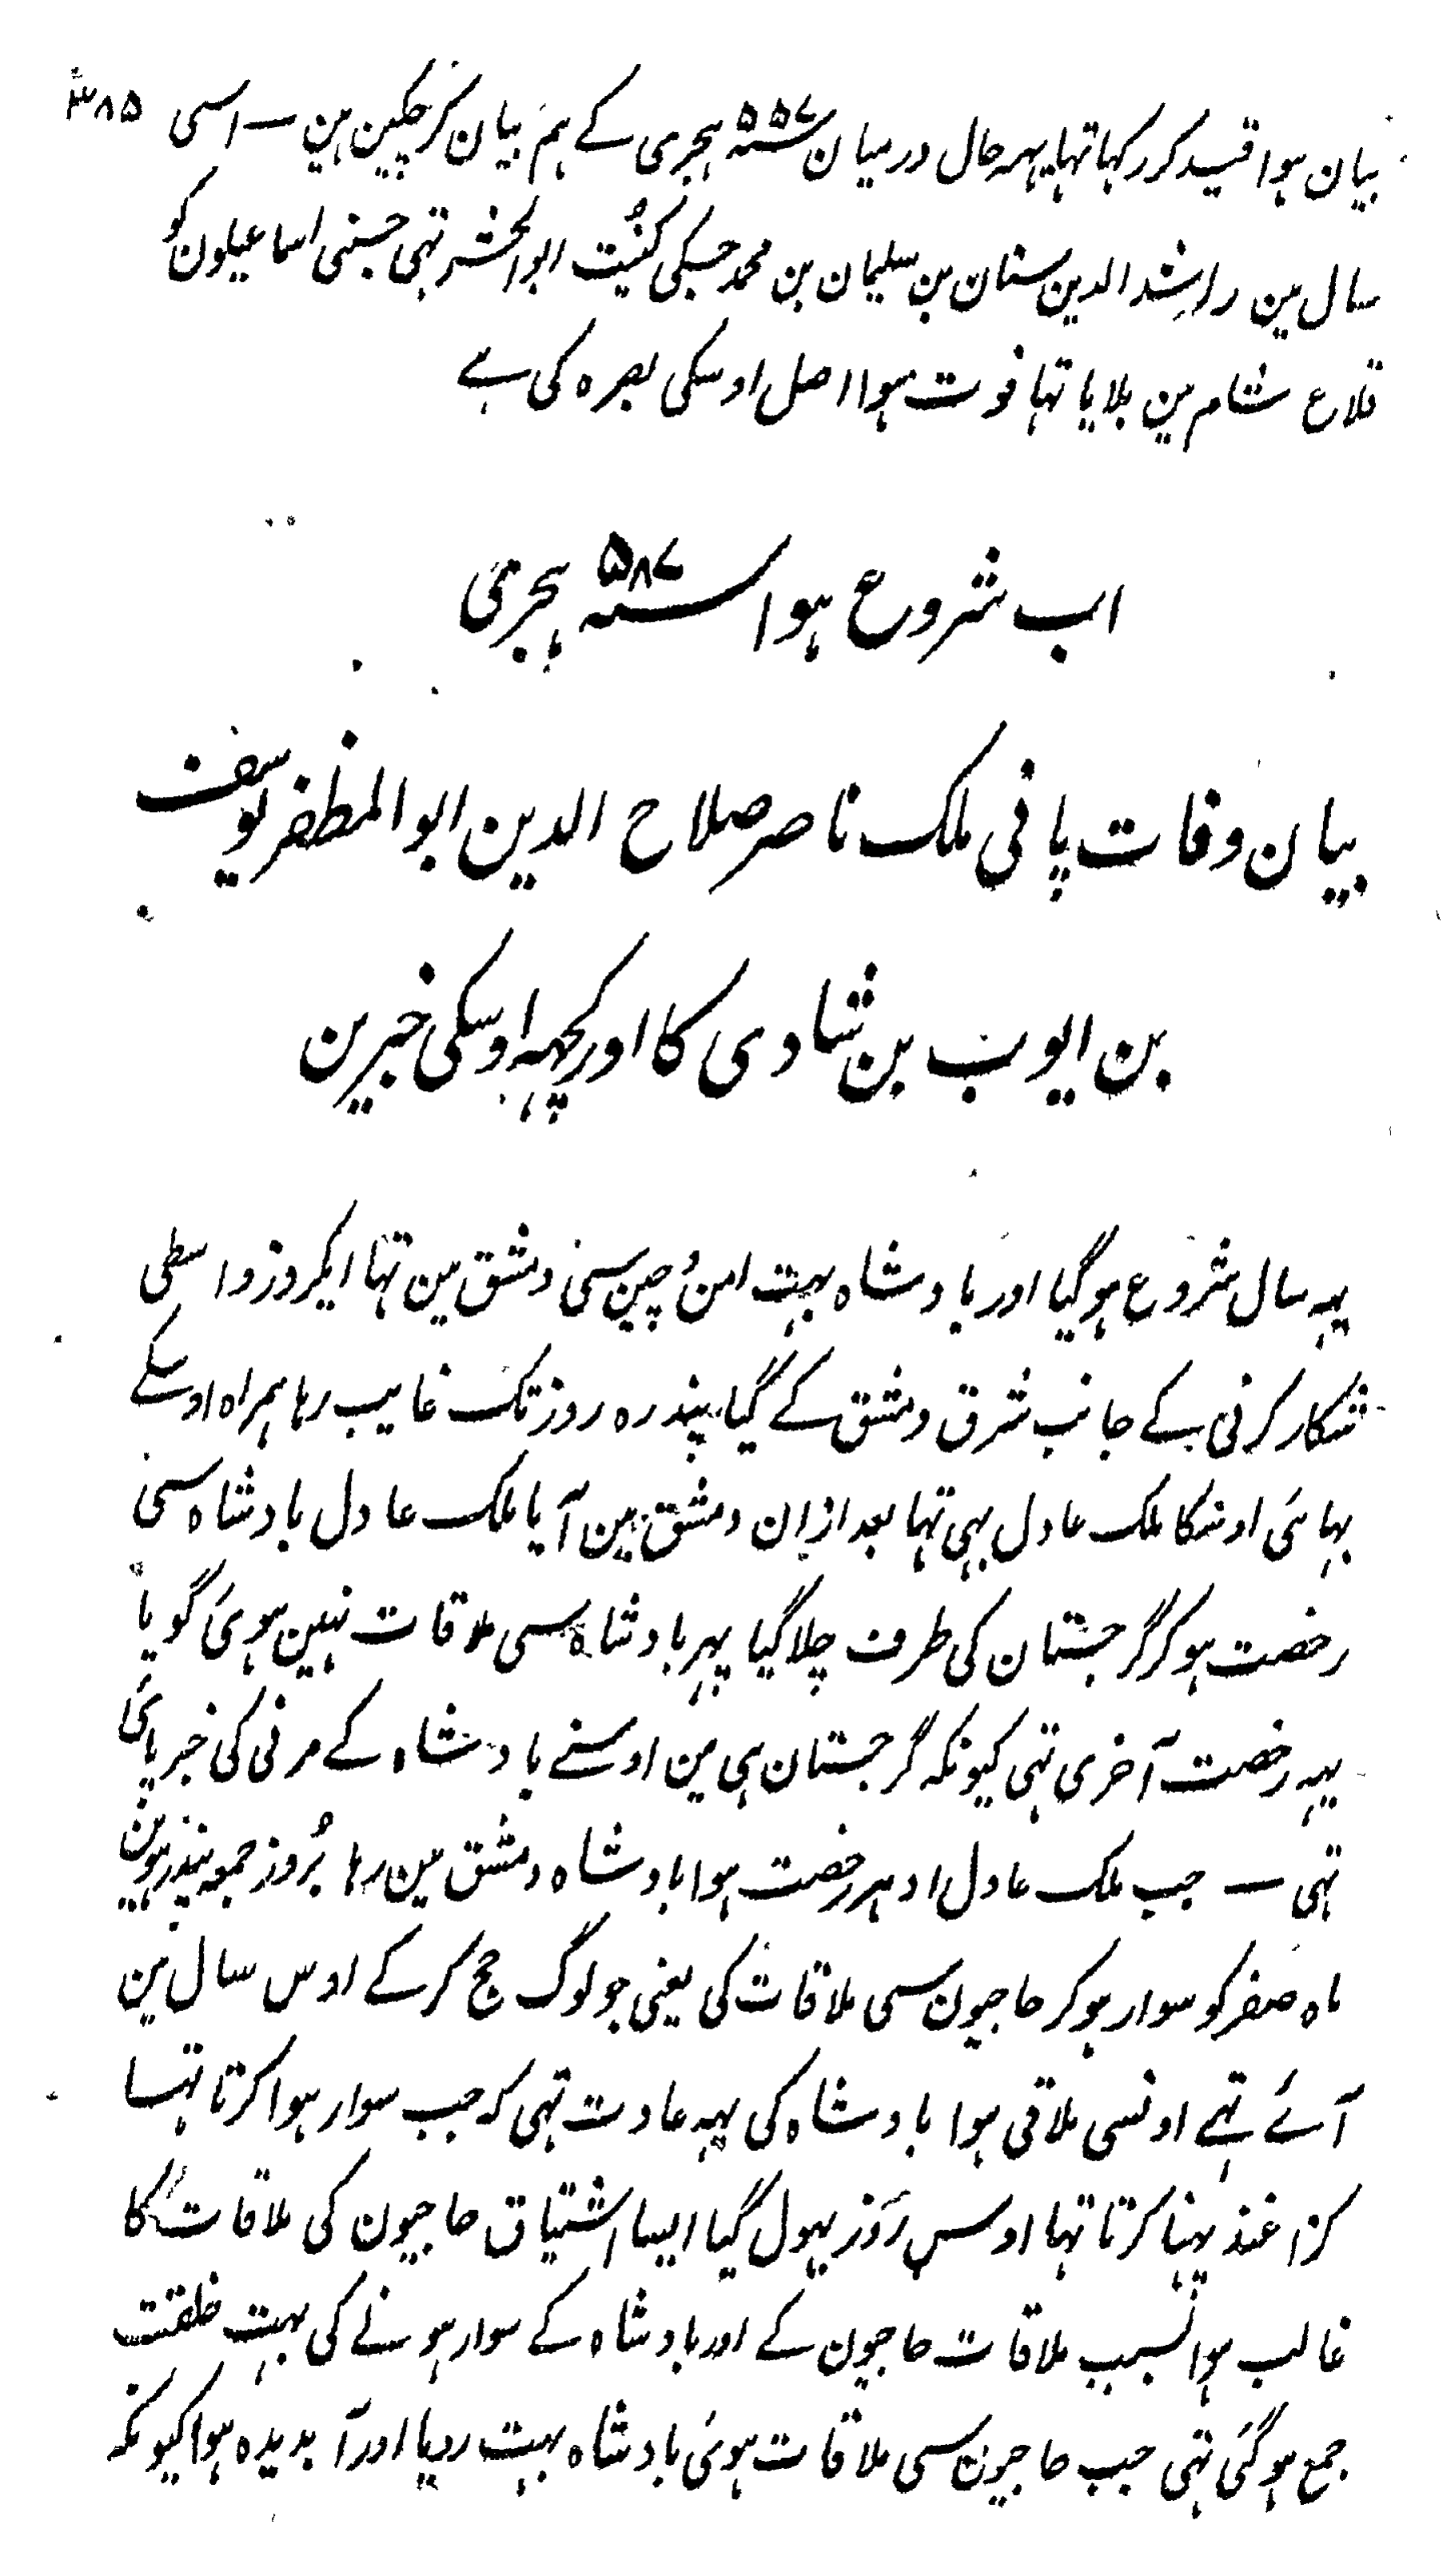 ۳۸۵
بیان ہوا قید کر رکہا تہا یہہ حال درمیان سنہ ۵۵۷ ہجری کے ہم بیان کر چکین ہین ـ اسی
سال مین راشد الدین سنان بن سلیمان بن محمد جسکی کنیت ابوالحشر تہی جسنی اسماعیلون کو
قلاع شام مین بلایا تہا فوت ہوا اصل اوسکی بصرہ کی ہے
اب شروع ہوا سنہ ۵۸۷ ہجری
بیان وفات پانی ملک ناصر صلاح الدین ابوالمظفر یوسف
بن ایوب بن شادی کا اور کچہہ اوسکی خبرین
یہہ سال شروع ہو گیا اور بادشاہ بہت امن و چین سی دمشق مین تہا ایکروز واسطی
شکار کرنی کے جانب شرق دمشق کے گیا پندرہ روز تک غایب رہا ہمراہ اوسکے
بہائی اوسکا ملک عادل بہی تہا بعد ازان دمشق مین آیا ملک عادل بادشاہ سی
رخصت ہو کر گرجستان کی طرف چلا گیا پہر بادشاہ سی ملاقات نہین ہوئی گویا
یہہ رخصت آخری تہی کیونکہ گرجستان ہی مین اوسنے بادشاہ کے مرنی کی خبر پائی
تہی ـ جب ملک عادل ادہر رخصت ہوا بادشاہ دمشق مین رہا بروز جمعہ پندرہوین
ماہ صفر کو سوار ہو کر حاجیون سی ملاقات کی یعنی جو لوگ حج کر کے اوس سال مین
آئے تہے اونسی ملاقی ہوا بادشاہ کی یہہ عادت تہی کہ جب سوار ہوا کرتا تہا
کزاغند پہنا کرتا تہا اوس روز بہول گیا ایسا اشتیاق حاجیون کی ملاقات کا
غالب ہوا بسبب ملاقات حاجیون کے اور بادشاہ کے سوار ہونے کی بہت خلقت
جمع ہو گئی تہی جب حاجیون سی ملاقات ہوئی بادشاہ بہت رویا اور آبدیدہ ہوا کیونکہ